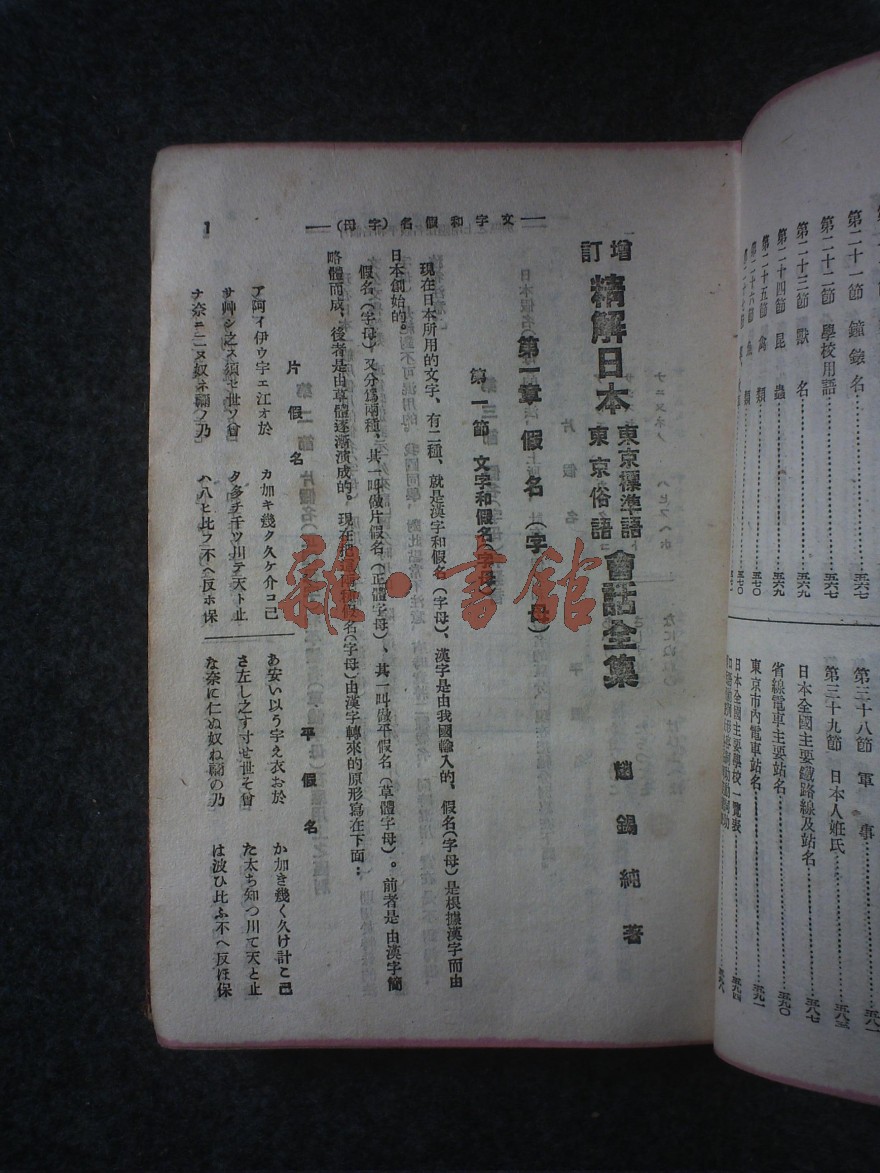 第二十一節　鐘錶名
第二十二節　學校用語……五六七
第二十三節　獸名……五六八
第二十四節　昆蟲……五六九
第二十五節　禽類……五七〇
第三十八節　軍事……五八一
第三十九節　日本人姓氏……五八三
日本全國主要鐵路線及站名……五八七
省線電車主要站名……五九〇
東京市內電車站名……五九一
日本全國主要學校一覽表……五九四
增訂　精解日本　東京標準語　東京俗語　會話全集
鍚純　著
第一章　假名（字母）
第一節　文字和假名（字母）
現在日本所用的文字、有二種、就是漢字和假名（字母）、漢字是由我國輸入的、假名（字母）是根據漢字而由
日本創始的。
假名（字母）又分爲兩種、其一叫做片假名（正體字母）、其一叫做平假名（草體字母）。前者是由漢字簡
略體而成、後者是由草體逐漸演成的。現在把這兩種假名（字母）由漢字轉來的原形寫在下面：
片假名
平假名
ア阿イ伊ウ宇エ江オ於　カ加キ幾ク久ケ介コ己
サ艸シ之ス須セ世ソ曾　タ多チ千ツ川テ天ト止
ナ奈ニ二ヌ奴ネ禰ノ乃　ハ八ヒ比フ不ヘ反ホ保
あ安い以う宇え衣お於　か加き幾く久け計こ己
さ左し之す寸せ世そ曾　た太ち知つ川て天と止
な奈に仁ぬ奴ね禰の乃　は波ひ比ふ不へ反ほ保
—文字和假名（字母）—
1
雜·書館